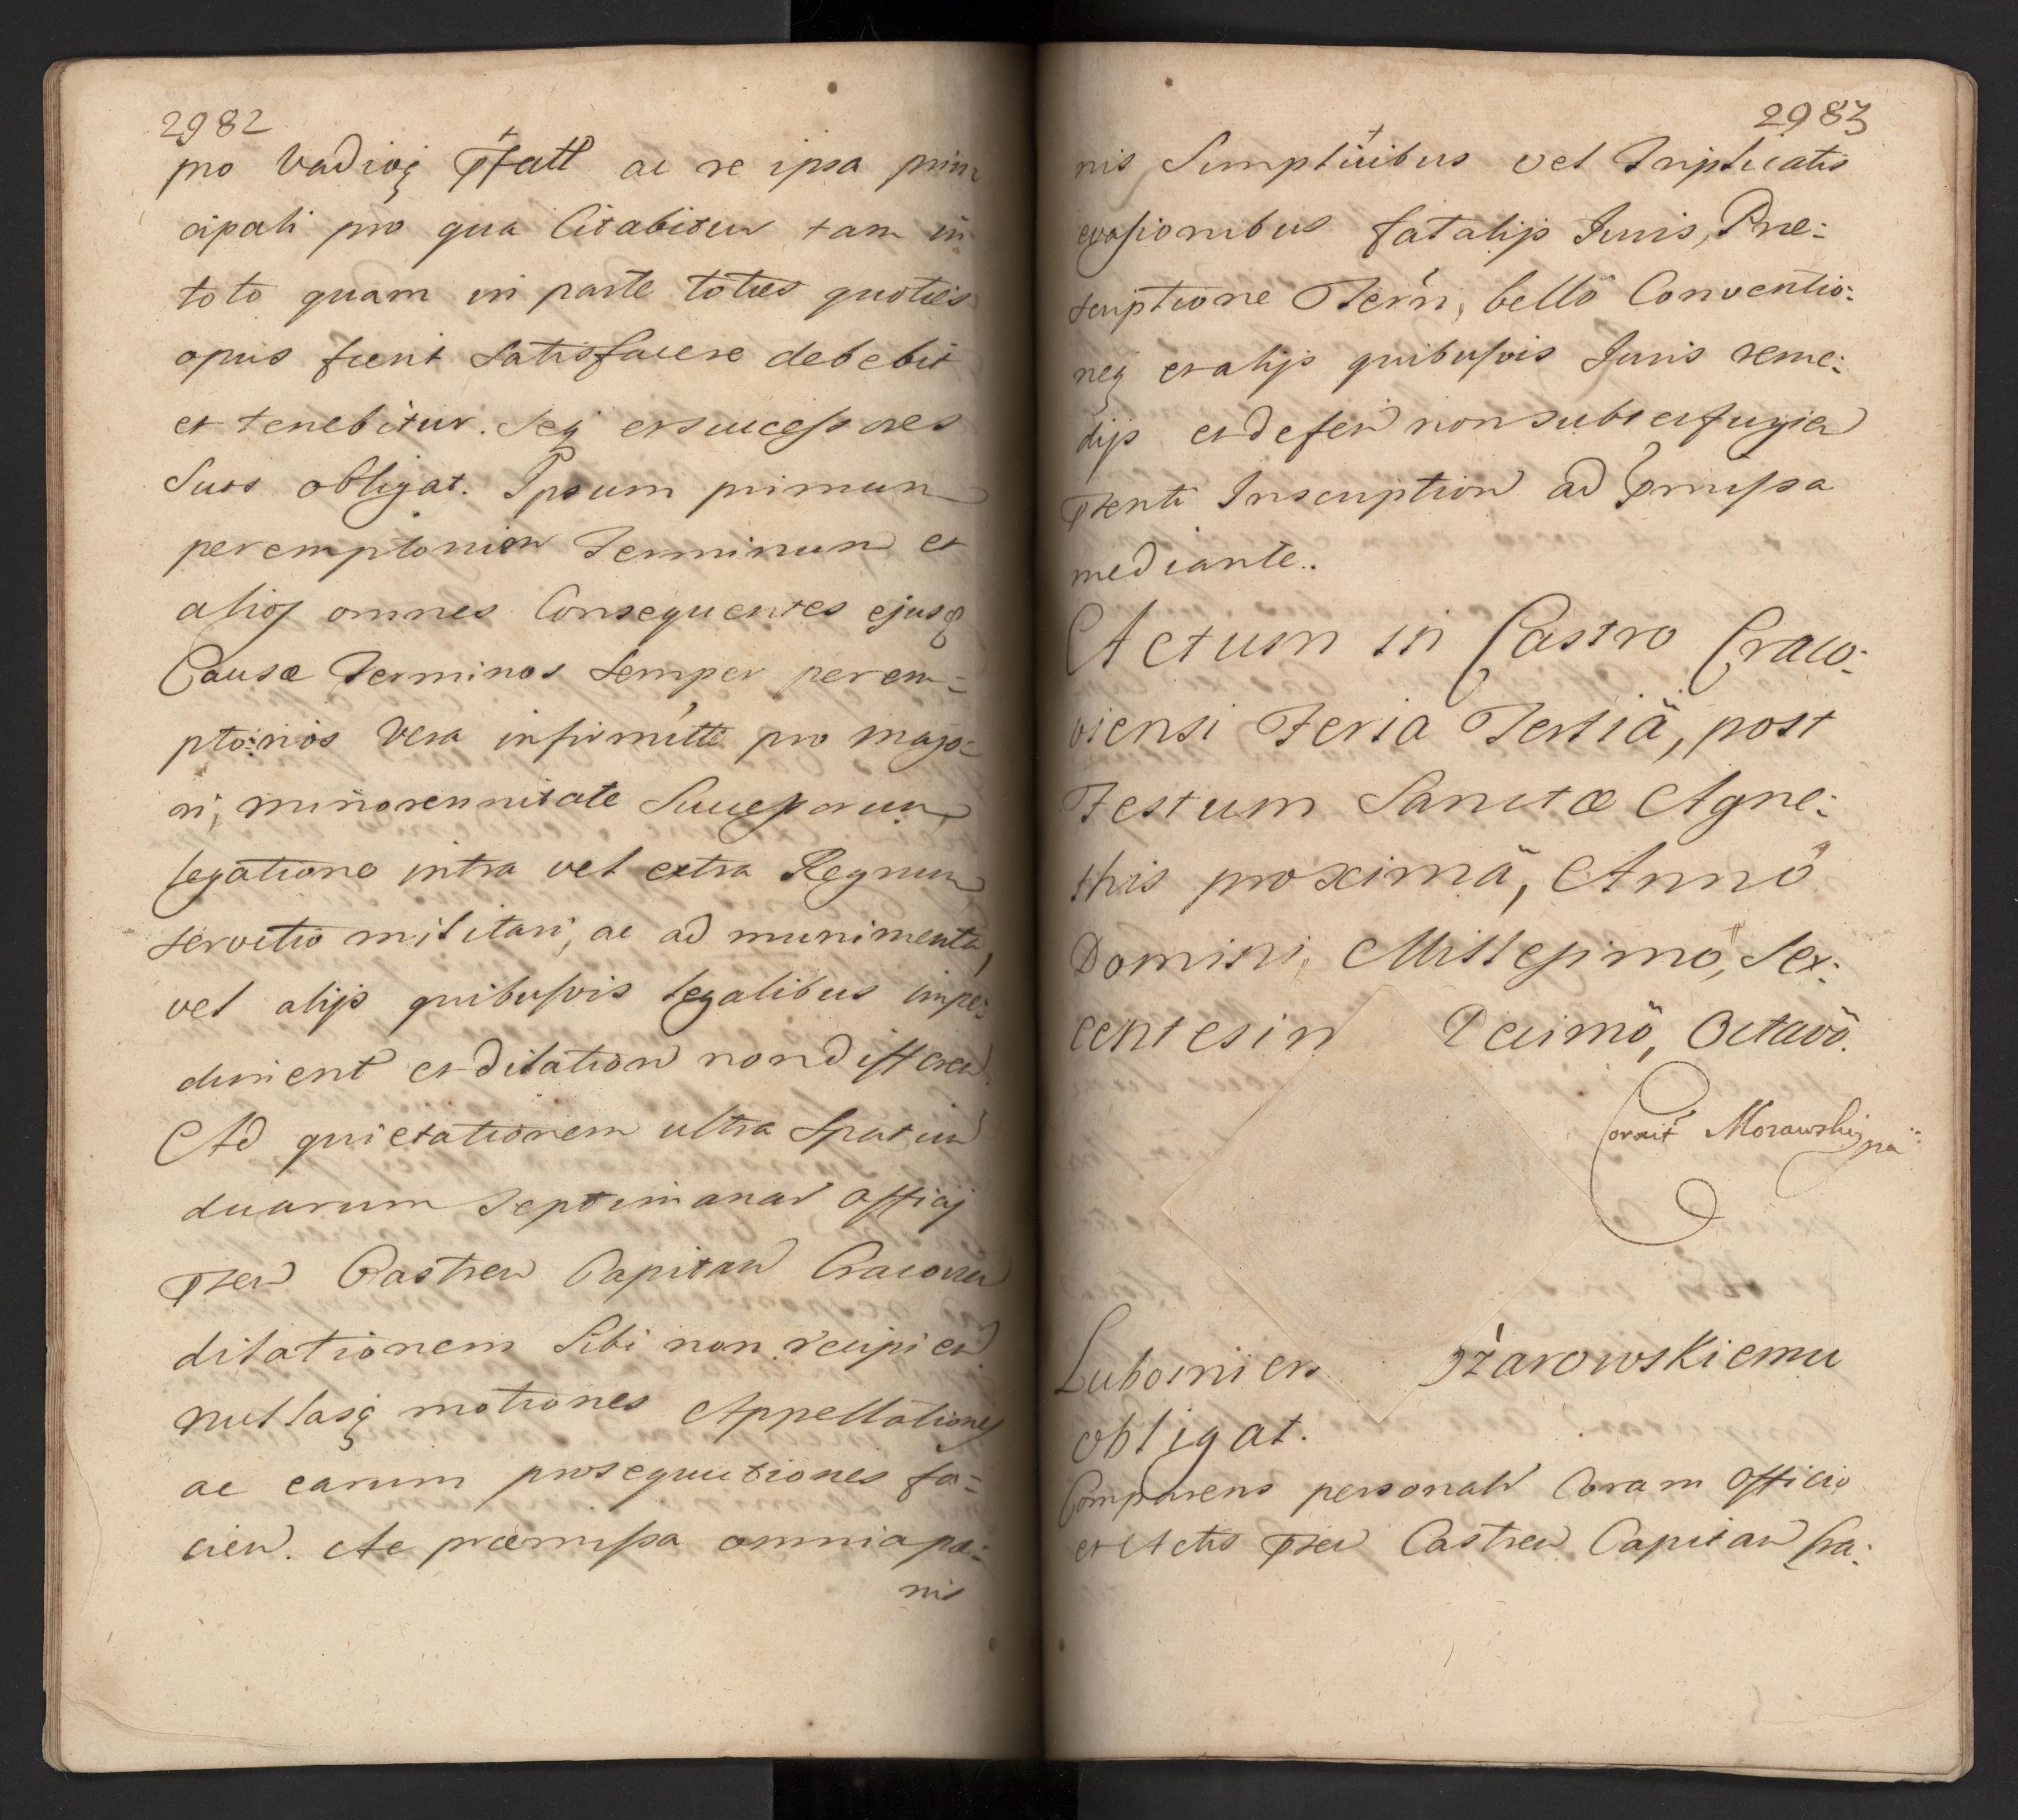 2982
pro vadioq̃ pfatt ac re ipsa prin
cipali pro qua Citabitur tam in
toto quam in parte toties quoties
opus fuerit Satisfacere debebit
et tenebitur. Seq et successores
Suos obligat. Ipsum primum
peremptorium Terminum et
alios omnes Consequentes ejusq
Causæ Terminos Semper perem=
ptorios vera infirmitte pro majo=
ri, minorennitate Successorum,
legatione intra vel extra Regnum
servitio militari, ac ad munimenta,
vel alijs quibusvis legalibus impe:
diment et dilation non differen
Ad quietationem ultra Spatium
duarum Septimanar Officij
pzen Castren Capitan Cracovien
dilationem Sibi non recipien
nullasq motiones Appellationes
ac earum prosequutiones fa=
cien. Ac præmissa omnia pæ:
nis
2983
nis Simplicibus vel Triplicatis
evasionibus fatalijs Juris, Præ:
scriptione Terrń, bellô Conventio:
neq et alijs quibusvis Juris reme:
dijs et defen non subterfugien
pzenti Inscription ad pmissa
mediante.
Actum in Castro Craco:
viensi Feria Tertiâ, post
Festum Sanctæ Agne:
this proximâ, Annô
Domini, Millesimô, Sex:
centesim Decimô, Octavô.
Corrit Morawski mpa
Lubomiers ożarowskiemu
obligat.
Comparens personalr Coram Officio
et Actis pzen Castren Capitan Cra: